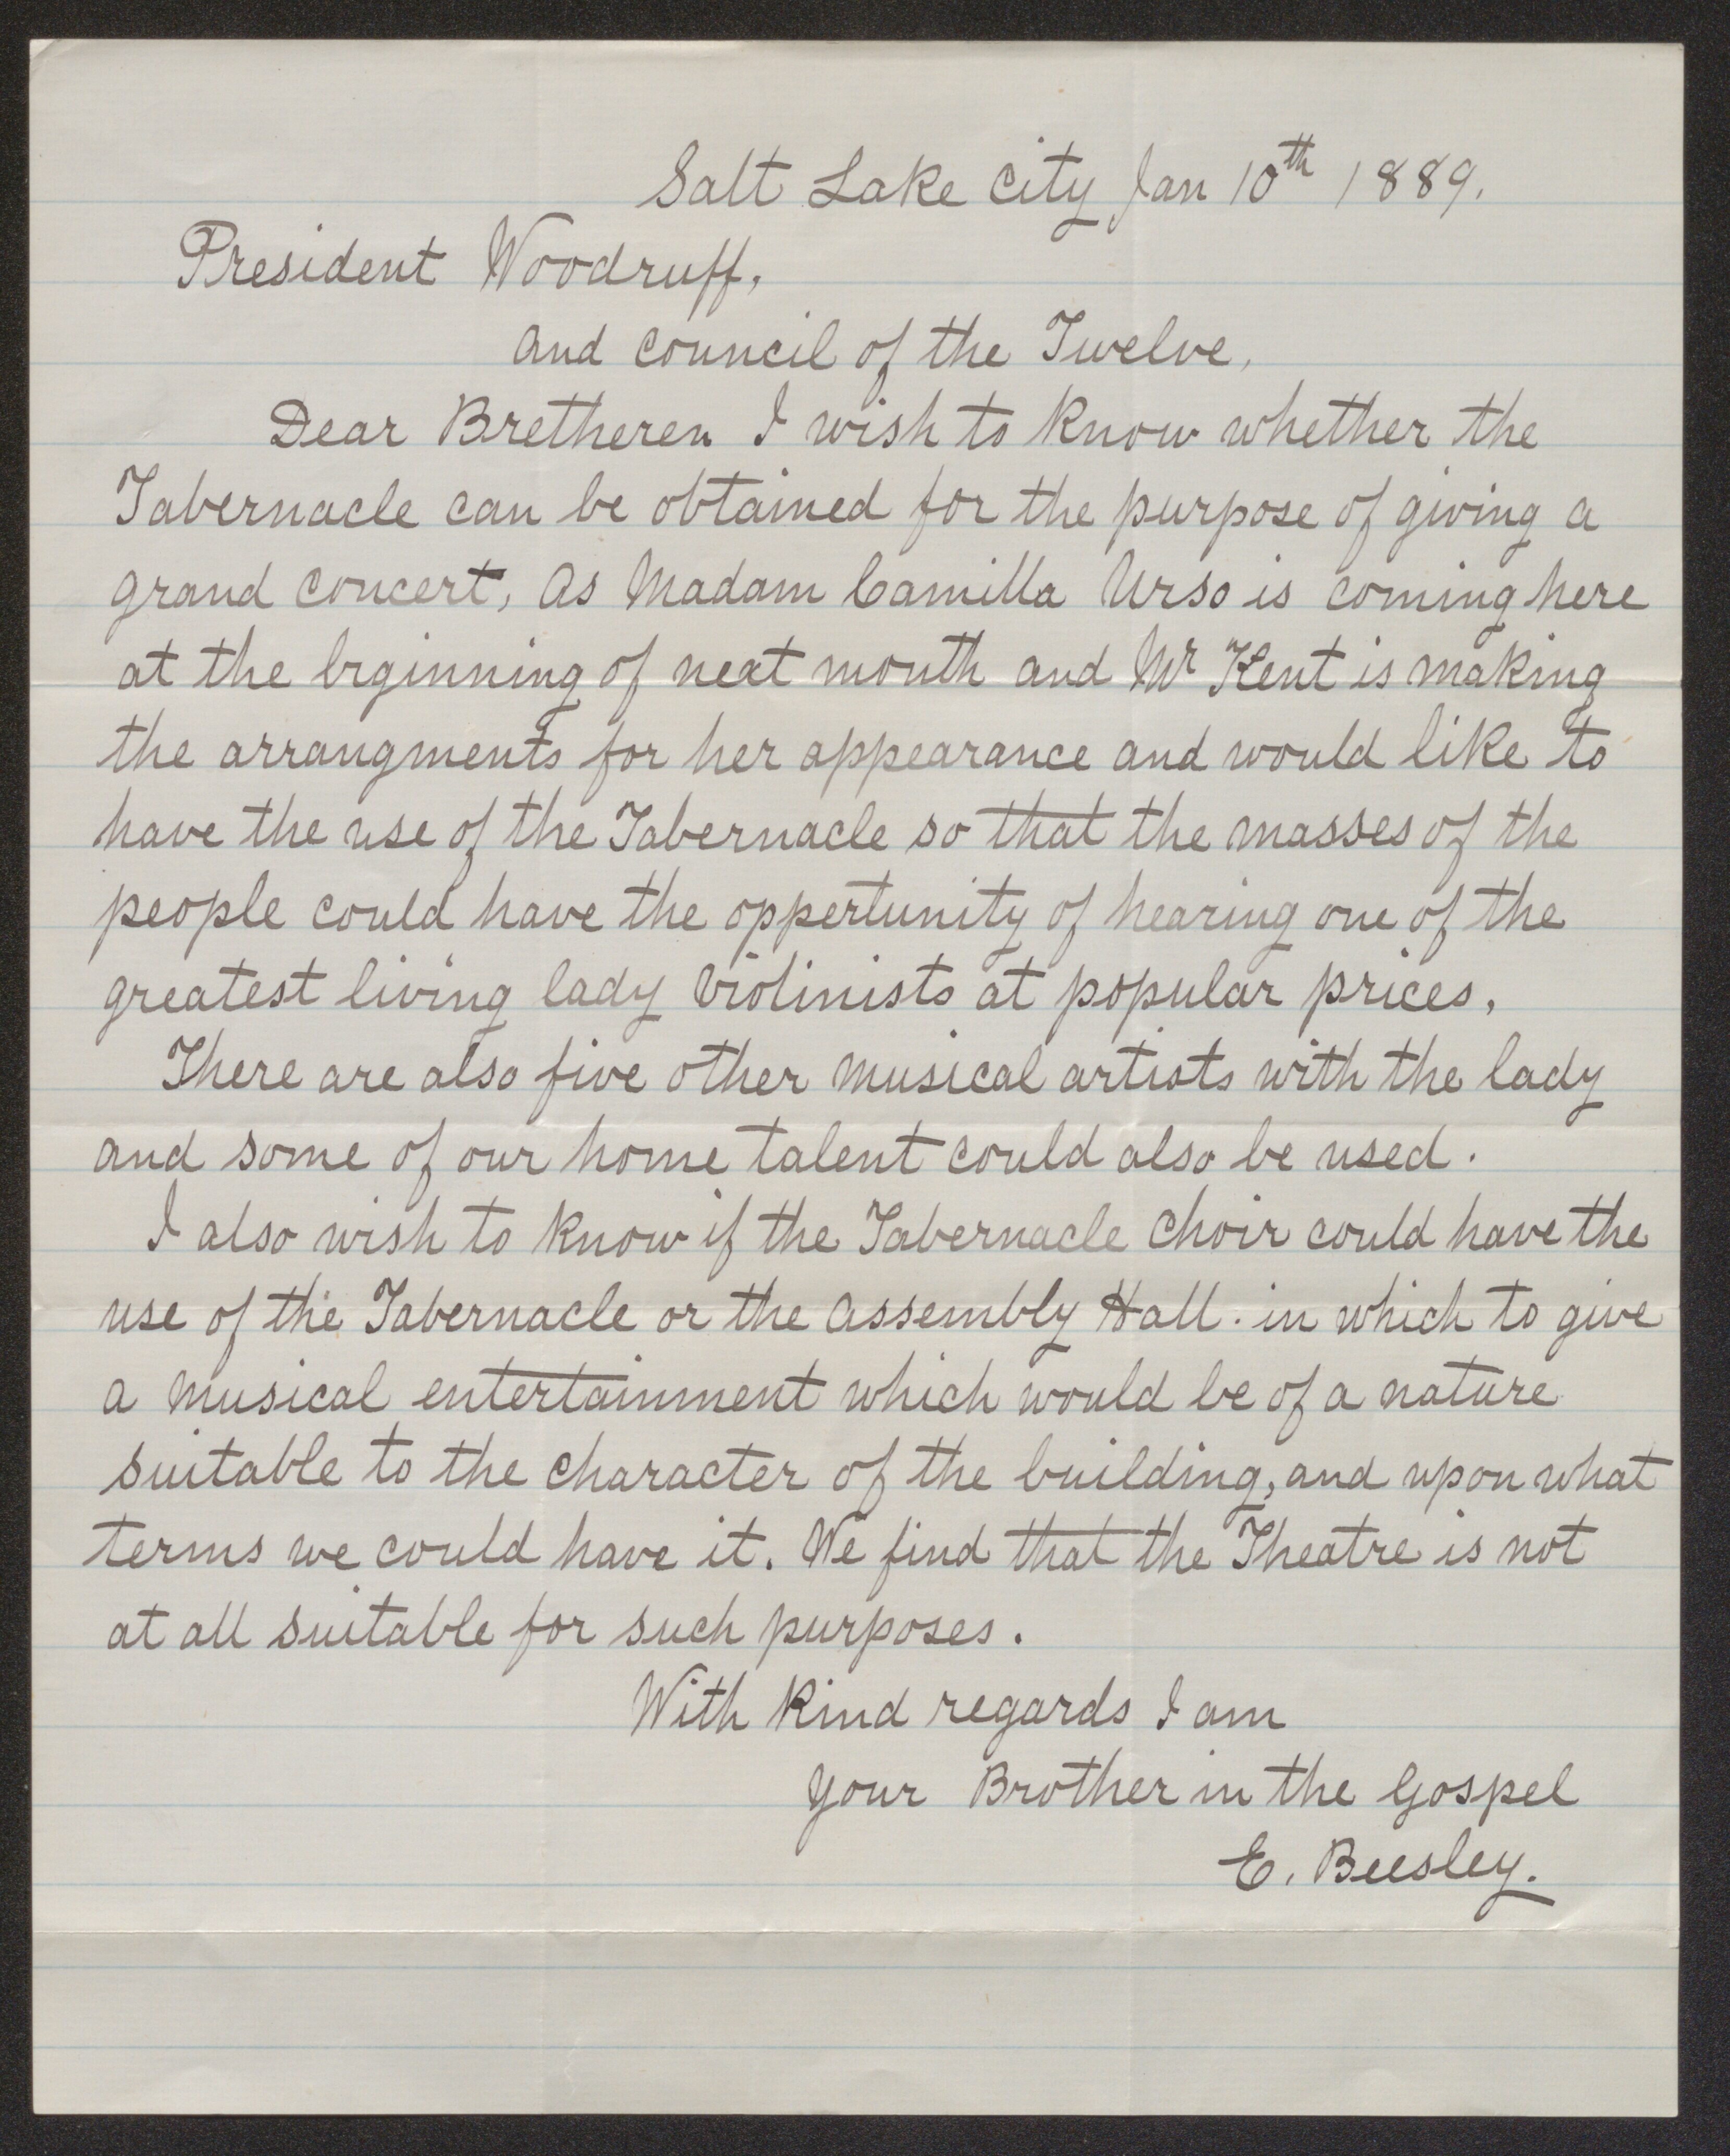 Salt Lake City Jan 10th 1889.
President Woodruff,
and Council of the Twelve,
Dear Bretheren I wish to know whether the
Tabernacle can be obtained for the purpose of giving a
grand concert, As Madam Camilla Urso is coming here
at the beginning of next month and Mr Kent is making
the arrangments for her appearance and would like to
have the use of the Tabernacle so that the masses of the
people could have the oppertunity of hearing one of the
greatest living lady violinists at popular prices,
There are also five other musical artists with the lady
and some of our home talent could also be used.
I also wish to know if the Tabernacle Choir could have the
use of the Tabernacle or the Assembly Hall. in which to give
a musical entertainment which would be of a nature
suitable to the character of the building, and upon what
terms we could have it. We find that the Theatre is not
at all suitable for such purposes.
With kind regards I am
Your Brother in the Gospel
E. Beesley.